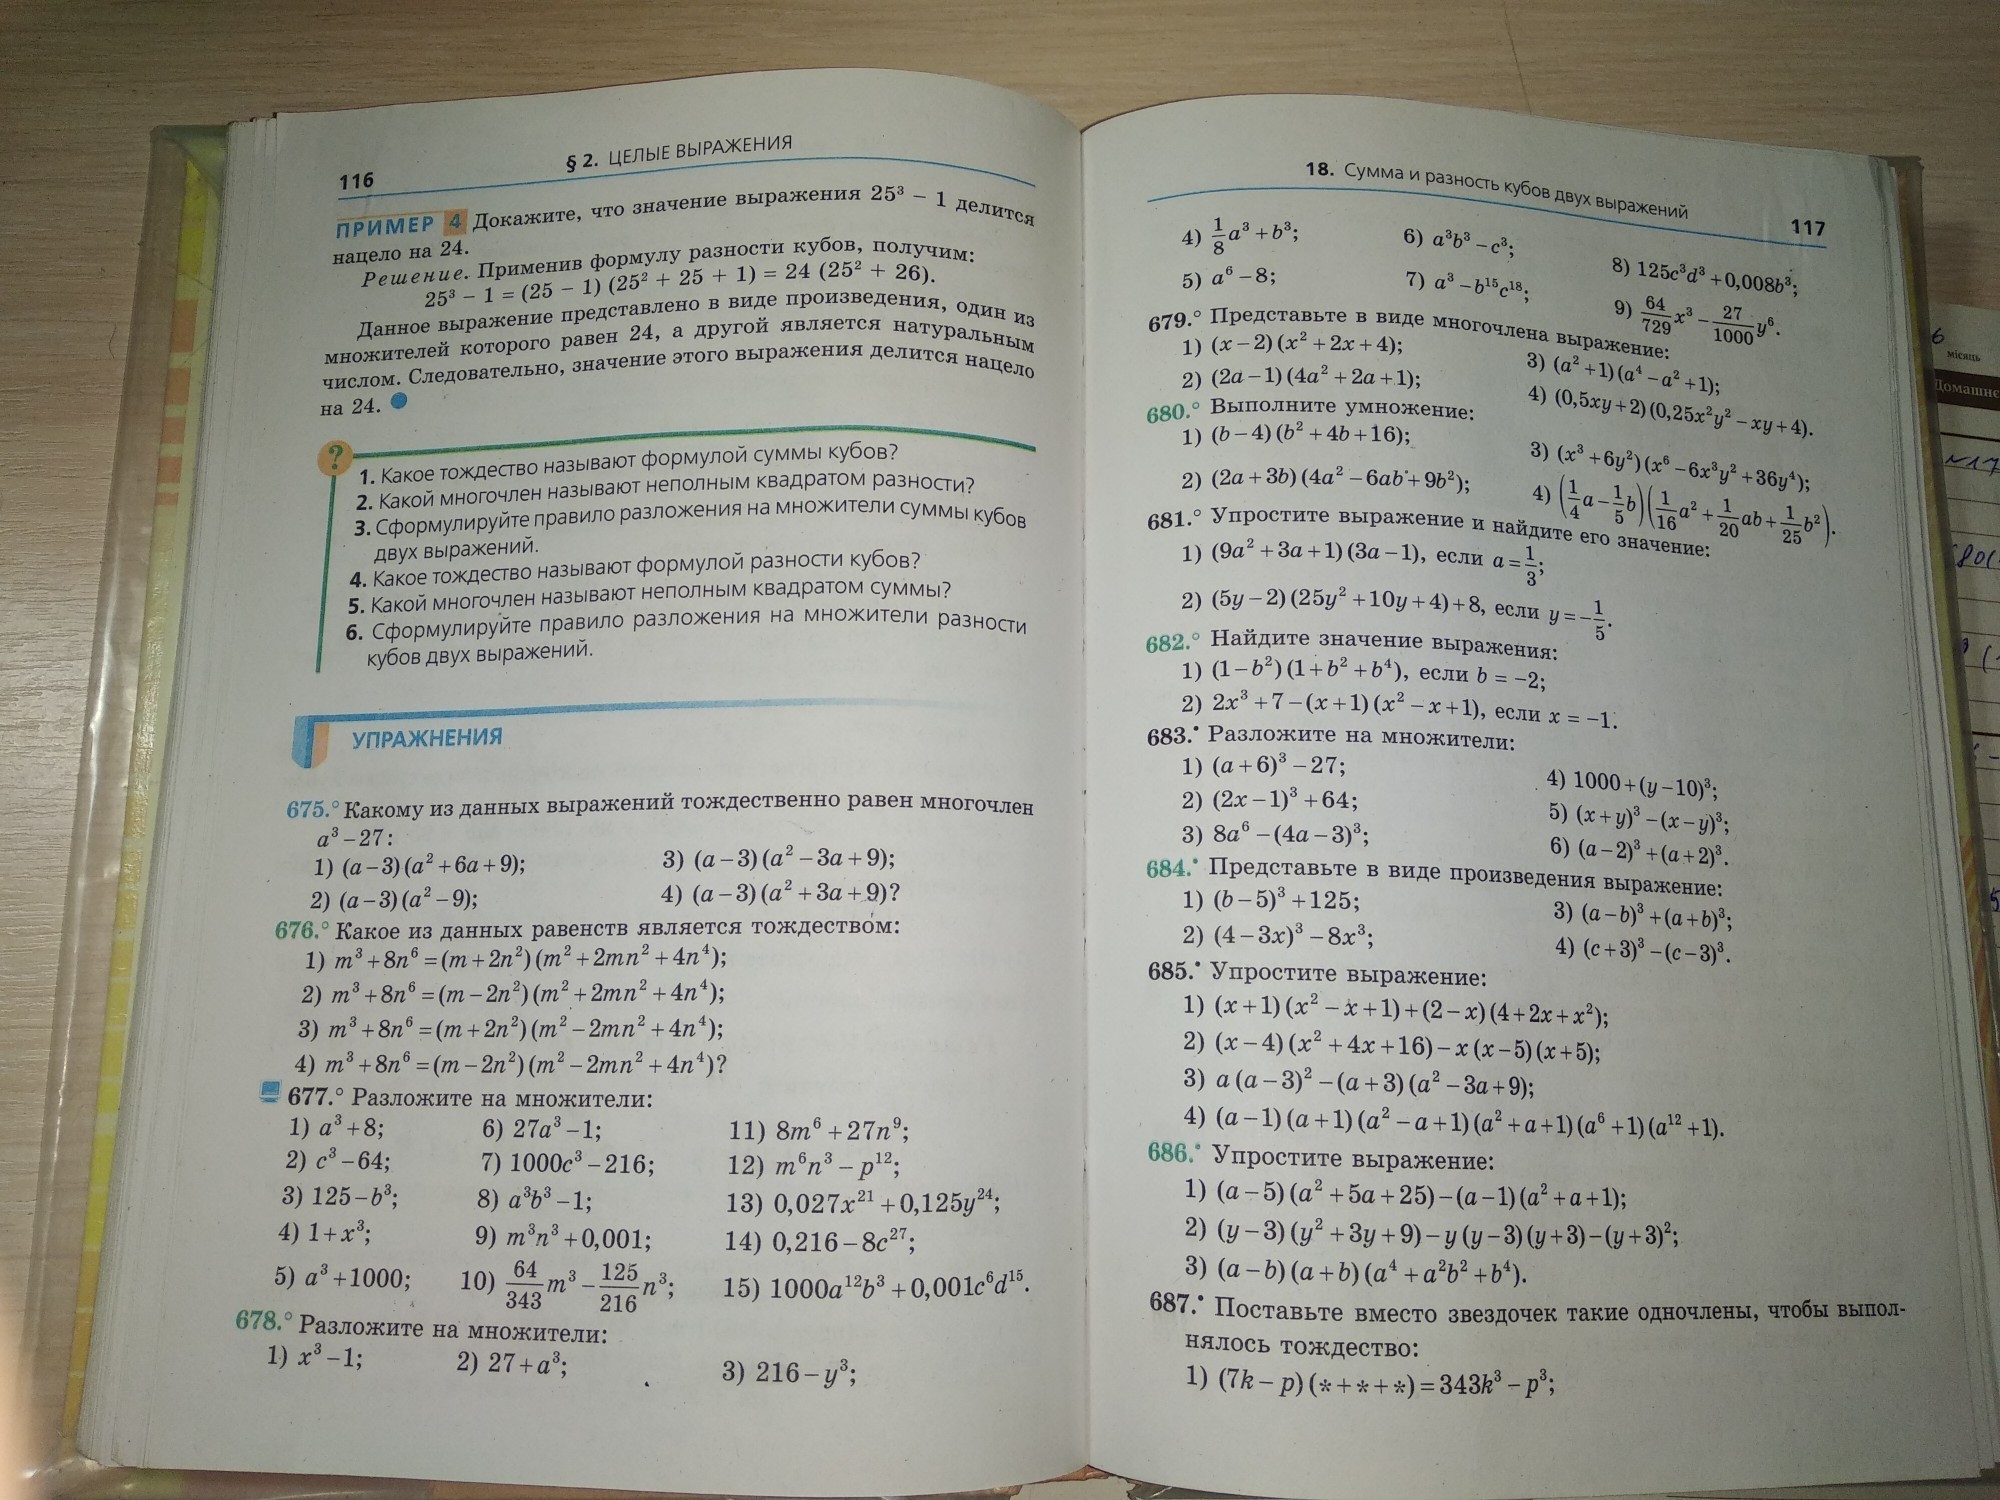 116
§ 2. ЦЕЛЫЕ ВЫРАЖЕНИЯ
ПРИМЕР 4 Докажите, что значение выражения 25³ − 1 делится
нацело на 24.
Решение. Применив формулу разности кубов, получим:
25³ − 1 = (25 − 1) (25² + 25 + 1) = 24 (25² + 26).
Данное выражение представлено в виде произведения, один из
множителей которого равен 24, а другой является натуральным
числом. Следовательно, значение этого выражения делится нацело
на 24.
?
1. Какое тождество называют формулой суммы кубов?
2. Какой многочлен называют неполным квадратом разности?
3. Сформулируйте правило разложения на множители суммы кубов
двух выражений.
4. Какое тождество называют формулой разности кубов?
5. Какой многочлен называют неполным квадратом суммы?
6. Сформулируйте правило разложения на множители разности
кубов двух выражений.
УПРАЖНЕНИЯ
675.° Какому из данных выражений тождественно равен многочлен
a³ − 27:
1) (a − 3)(a² + 6a + 9); 3) (a − 3)(a² − 3a + 9);
2) (a − 3)(a² − 9); 4) (a − 3)(a² + 3a + 9)?
676.° Какое из данных равенств является тождеством:
1) m³ + 8n⁶ = (m + 2n²)(m² + 2mn² + 4n⁴);
2) m³ + 8n⁶ = (m − 2n²)(m² + 2mn² + 4n⁴);
3) m³ + 8n⁶ = (m + 2n²)(m² − 2mn² + 4n⁴);
4) m³ + 8n⁶ = (m − 2n²)(m² − 2mn² + 4n⁴)?
677.° Разложите на множители:
1) a³ + 8; 6) 27a³ − 1; 11) 8m⁶ + 27n⁹;
2) c³ − 64; 7) 1000c³ − 216; 12) m⁶n³ − p¹²;
3) 125 − b³; 8) a³b³ − 1; 13) 0,027x²¹ + 0,125y²⁴;
4) 1 + x³; 9) m³n³ + 0,001; 14) 0,216 − 8c²⁷;
5) a³ + 1000; 10) 64/343 m³ − 125/216 n³; 15) 1000a¹²b³ + 0,001c⁶d¹⁵.
678.° Разложите на множители:
1) x³ − 1; 2) 27 + a³; 3) 216 − y³;
18. Сумма и разность кубов двух выражений
117
4) 1/8 a³ + b³; 6) a³b³ − c³; 8) 125c³d³ + 0,008b³;
5) a⁶ − 8; 7) a³ − b¹⁵c¹⁸; 9) 64/729 x³ − 27/1000 y⁶.
679.° Представьте в виде многочлена выражение:
1) (x − 2)(x² + 2x + 4); 3) (a² + 1)(a⁴ − a² + 1);
2) (2a − 1)(4a² + 2a + 1); 4) (0,5xy + 2)(0,25x²y² − xy + 4).
680.° Выполните умножение:
1) (b − 4)(b² + 4b + 16); 3) (x³ + 6y²)(x⁶ − 6x³y² + 36y⁴);
2) (2a + 3b)(4a² − 6ab + 9b²); 4) (1/4 a − 1/5 b)(1/16 a² + 1/20 ab + 1/25 b²).
681.° Упростите выражение и найдите его значение:
1) (9a² + 3a + 1)(3a − 1), если a = 1/3;
2) (5y − 2)(25y² + 10y + 4) + 8, если y = −1/5.
682.° Найдите значение выражения:
1) (1 − b²)(1 + b² + b⁴), если b = −2;
2) 2x³ + 7 − (x + 1)(x² − x + 1), если x = −1.
683.• Разложите на множители:
1) (a + 6)³ − 27; 4) 1000 + (y − 10)³;
2) (2x − 1)³ + 64; 5) (x + y)³ − (x − y)³;
3) 8a⁶ − (4a − 3)³; 6) (a − 2)³ + (a + 2)³.
684.• Представьте в виде произведения выражение:
1) (b − 5)³ + 125; 3) (a − b)³ + (a + b)³;
2) (4 − 3x)³ − 8x³; 4) (c + 3)³ − (c − 3)³.
685.• Упростите выражение:
1) (x + 1)(x² − x + 1) + (2 − x)(4 + 2x + x²);
2) (x − 4)(x² + 4x + 16) − x(x − 5)(x + 5);
3) a(a − 3)² − (a + 3)(a² − 3a + 9);
4) (a − 1)(a + 1)(a² − a + 1)(a² + a + 1)(a⁶ + 1)(a¹² + 1).
686.• Упростите выражение:
1) (a − 5)(a² + 5a + 25) − (a − 1)(a² + a + 1);
2) (y − 3)(y² + 3y + 9) − y(y − 3)(y + 3) − (y + 3)²;
3) (a − b)(a + b)(a⁴ + a²b² + b⁴).
687.• Поставьте вместо звездочек такие одночлены, чтобы выпол-
нялось тождество:
1) (7k − p)(* + * + *) = 343k³ − p³;
місяць